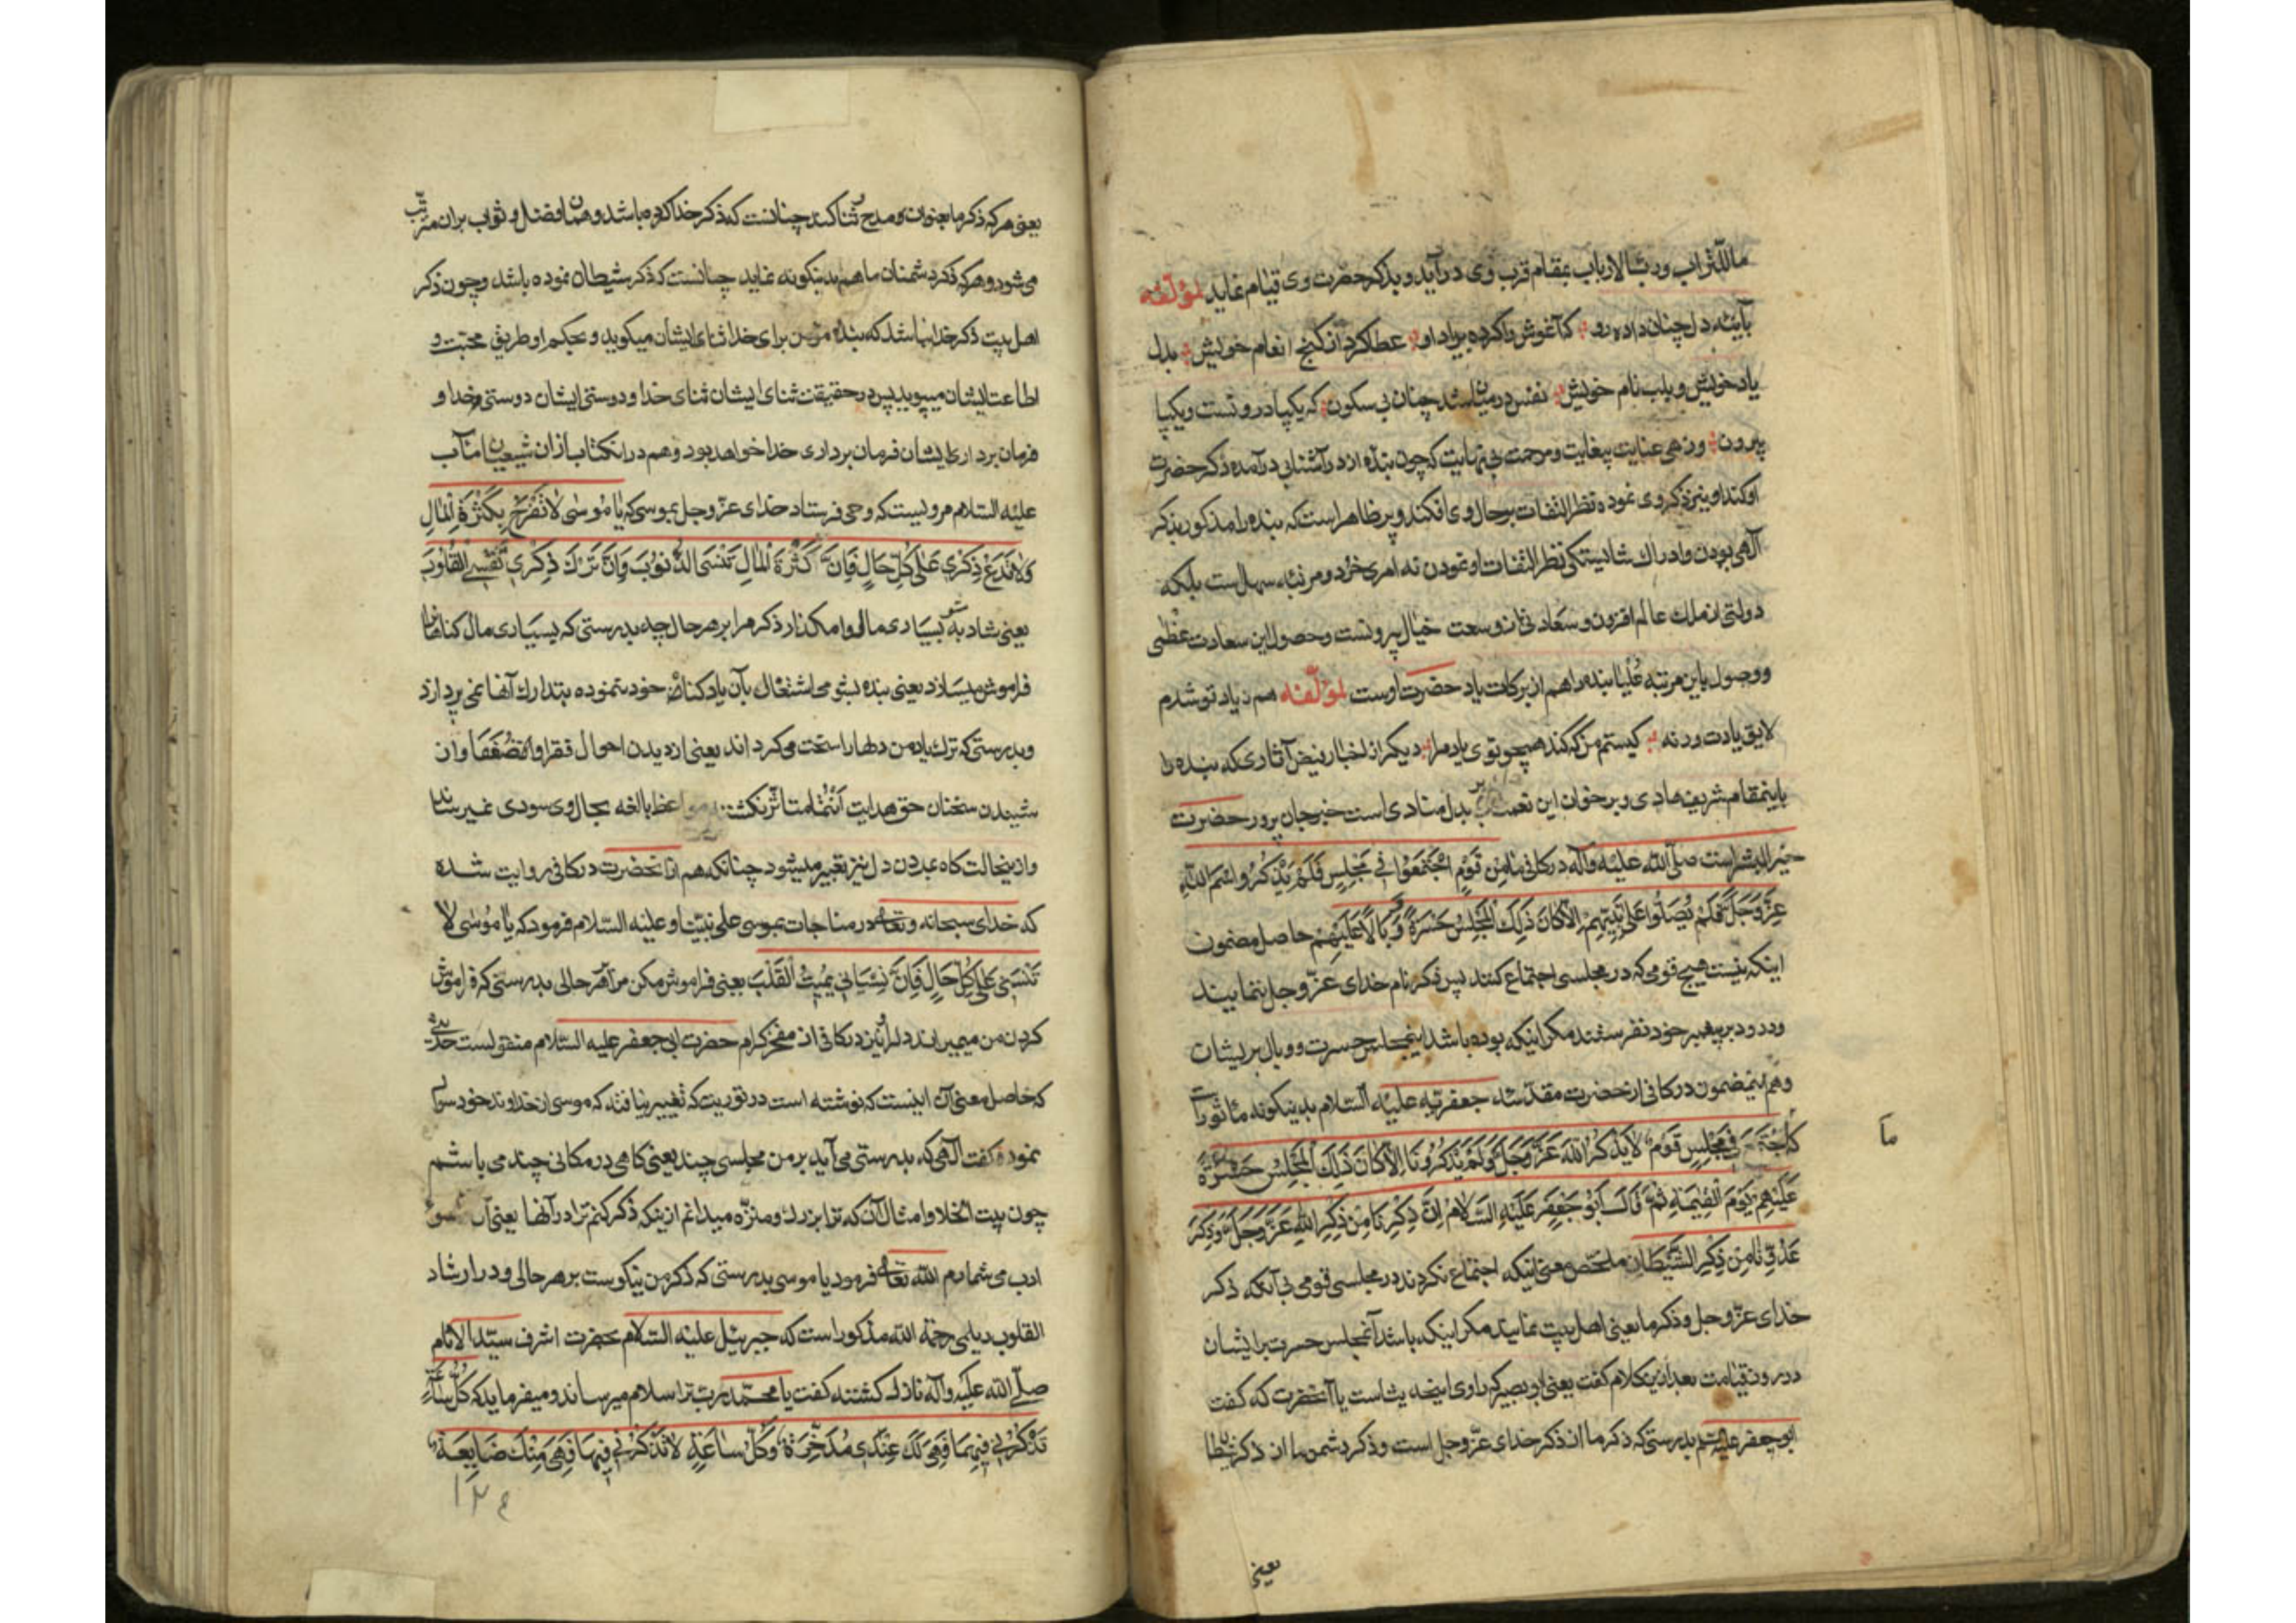 ما للتراب ورب الارباب بمقام قرب وی درآید و بذکر حضرت وی قیام نماید لمؤلفه
بآینه دل چنان داده رو کآغوش واکرده بر یاد او عطا کرد از کنج انعام خویش بدل
یاد خویش و بلب نام خویش نفس در میان شد چنان بی سکون که یکپا درونست و یکپا
بیرون وزهی عنایت بیغایت ومرحمت بی نهایت که چون بنده از در آشنایی درآمده ذکر حضرت
او کند او نیز ذکر وی نموده نظر التفات برحال وی افکند و پر ظاهر است که بنده را مذکور بذکر
آلهی بودن وادراك شایستکی نظر التفات او نمودن نه امری خرد و مرتبهٔ سهل است بلکه
دولتی از ملك عالم افزون و سعادتی از وسعت خیال بیرونست وحصول این سعادت عظمی
ووصول باین مرتبه علیا بنده را هم از برکات یاد حضرت اوست لمؤلفه هم ز یاد تو شدم
لایق یادت ورنه کیستم من که کند همچو توی یاد مرا دیکر از اخبار فیض آثاری که بنده را
باینمقام شریف هادی و برخوان این نعمت بدل منادی است خبر جان پرور حضرت
خیر البشر است صلی الله علیه وآله در کافی مَا مِن قَومٍ اجْتَمَعُوا فِی مَجْلِسٍ فَلَمْ یَذْکُرُوا اسْمَ اللهِ
عَزَّ وَجَلَّ وَلَمْ یُصَلُّوا عَلَی نَبِیِّهِمْ اِلَّا کَانَ ذَلِكَ الْمَجْلِسُ حَسْرَةً وَوَبَالًا عَلَیْهِمْ حاصل مضمون
اینکه نیست هیچ قومی که در مجلسی اجتماع کنند پس ذکر نام خدای عزّ وجل ننمایند
ودرود بر پیغمبر خود نفرستند مکر اینکه بوده باشد اینمجلس حسرت و وبال بر ایشان
وهم اینمضمون در کافی از حضرت مقدّسه جعفریّه علیه السلام بدینکونه مأثور است
که مَا اجْتَمَعَ فِی مَجْلِسٍ قَوْمٌ لَا یَذْکُرُ اللهَ عَزَّ وَجَلَّ وَلَمْ یَذْکُرُونَا اِلَّا کَانَ ذَلِكَ الْمَجْلِسُ حَسْرَةً
عَلَیْهِمْ یَوْمَ الْقِیٰمَةِ ثُمَّ قَالَ اَبُو جَعْفَرٍ عَلَیْهِ السَّلَامُ اِنَّ ذِکْرَنَا مِنْ ذِکْرِ اللهِ عَزَّ وَجَلَّ وَذِکْرَ
عَدُوِّنَا مِنْ ذِکْرِ الشَّیْطَانِ ملخّص معنی اینکه اجتماع نکردند در مجلسی قومی بی آنکه ذکر
خدای عزّ وجل وذکر ما یعنی اهل بیت نمایند مکر اینکه باشد آنمجلس حسرت بر ایشان
در روز قیامت بعد از ین کلام کفت یعنی ابوبصیر که راوی اینحدیث است یا آنحضرت که کفت
ابو جعفر علیه السلم بدرستی که ذکر ما از ذکر خدای عزّ وجل است وذکر دشمن ما از ذکر شیطا
ما
یعنی
یعنی هر که ذکر ما بعنوان ومدح و ثنا کند چنانست که ذکر خدا کرده باشد وهمان فضل و ثواب بر ان مرتّب
می شود و هر که ذکر دشمنان ما هم بدینکونه نماید چنانست که ذکر شیطان نموده باشد وچون ذکر
اهل بیت ذکر خدا نباشد که بنده مؤمن برای خدا ثنای ایشان میکوید و بحکم او طریق محبّت و
اطاعت ایشان میپوید پس در حقیقت ثنای ایشان ثنای خدا و دوستی ایشان دوستی خدا و
فرمان برداری ایشان فرمان برداری خدا خواهد بود وهم در انکتاب از ان شیعیان مآب
علیه السلام مرویست که وحی فرستاد خدای عزّ وجل بموسی که یَا مُوسٰی لَا تَفْرَحْ بِکَثْرَةِ الْمَالِ
وَلَا تَدَعْ ذِکْرِی عَلٰی کُلِّ حَالٍ فَاِنَّ کَثْرَةَ الْمَالِ تُنْسِی الذُّنُوبَ وَاِنَّ تَرْكَ ذِکْرِی تُقْسِی الْقُلُوبَ
یعنی شاد مشو به بسیاری مال و وامکذار ذکر مرا بر هر حال چه بدرستی که بسیاری مال کناهان را
فراموش میسازد یعنی بنده بشومی اشتغال بآن یاد کناهان خود ننموده بتدارك آنها نمی پردازد
وبدرستی که ترك یاد من دلها را سخت می کرداند یعنی از دیدن احوال فقرا وضعفا وان
شنیدن سخنان حق هدایت انتما متأثر نکشته مواعظ بالغه بحال وی سودی نمیرساند
واز ینحالت کاه بمردن دل نیز تعبیر میشود چنانکه هم از آنحضرت در کافی روایت شده
که خدای سبحانه وتعالی در مناجات بموسی علی نبیّنا وعلیه السلام فرمود که یَا مُوسٰی لَا
تَنْسَنِی عَلٰی کُلِّ حَالٍ فَاِنَّ نِسْیَانِی یُمِیتُ الْقَلْبَ یعنی فراموش مکن مرا بر هر حالی بدرستی که فراموش
کردن من میمیراند دل را ونیز در کافی از مفخر کرام حضرت ابی جعفر علیه السّلام منقولست حدیثی
که حاصل معنی آن اینست که نوشته است در توریت که تغییر نیافته که موسی از خداوند خود سؤال
نموده کفت آلهی که بدرستی می آید بر من مجلسی چند یعنی کاهی در مکانی چند می باشم
چون بیت الخلا وامثال آن که ترا بزرك ومنزّه میدانم از ینکه ذکر کنم ترا در آنها یعنی آن سوء
ادب می شمارم الله تعالی فرمود یا موسی بدرستی که ذکر من نیکوست بر هر حالی ودر ارشاد
القلوب دیلمی رحمة الله مذکور است که جبرئیل علیه السلام بحضرت اشرف سیّد الانام
صلّی الله علیه وآله نازل کشته کفت یا محمّد ربّ ترا سلام میرساند ومیفرماید که کُلُّ سَاعَةٍ
تَذْکُرُنِی فِیهَا فَهِیَ لَكَ عِنْدِی مُدَّخَرَةٌ وَکُلُّ سَاعَةٍ لَا تَذْکُرُنِی فِیهَا فَهِیَ مِنْكَ ضَایِعَةٌ
١٢٤